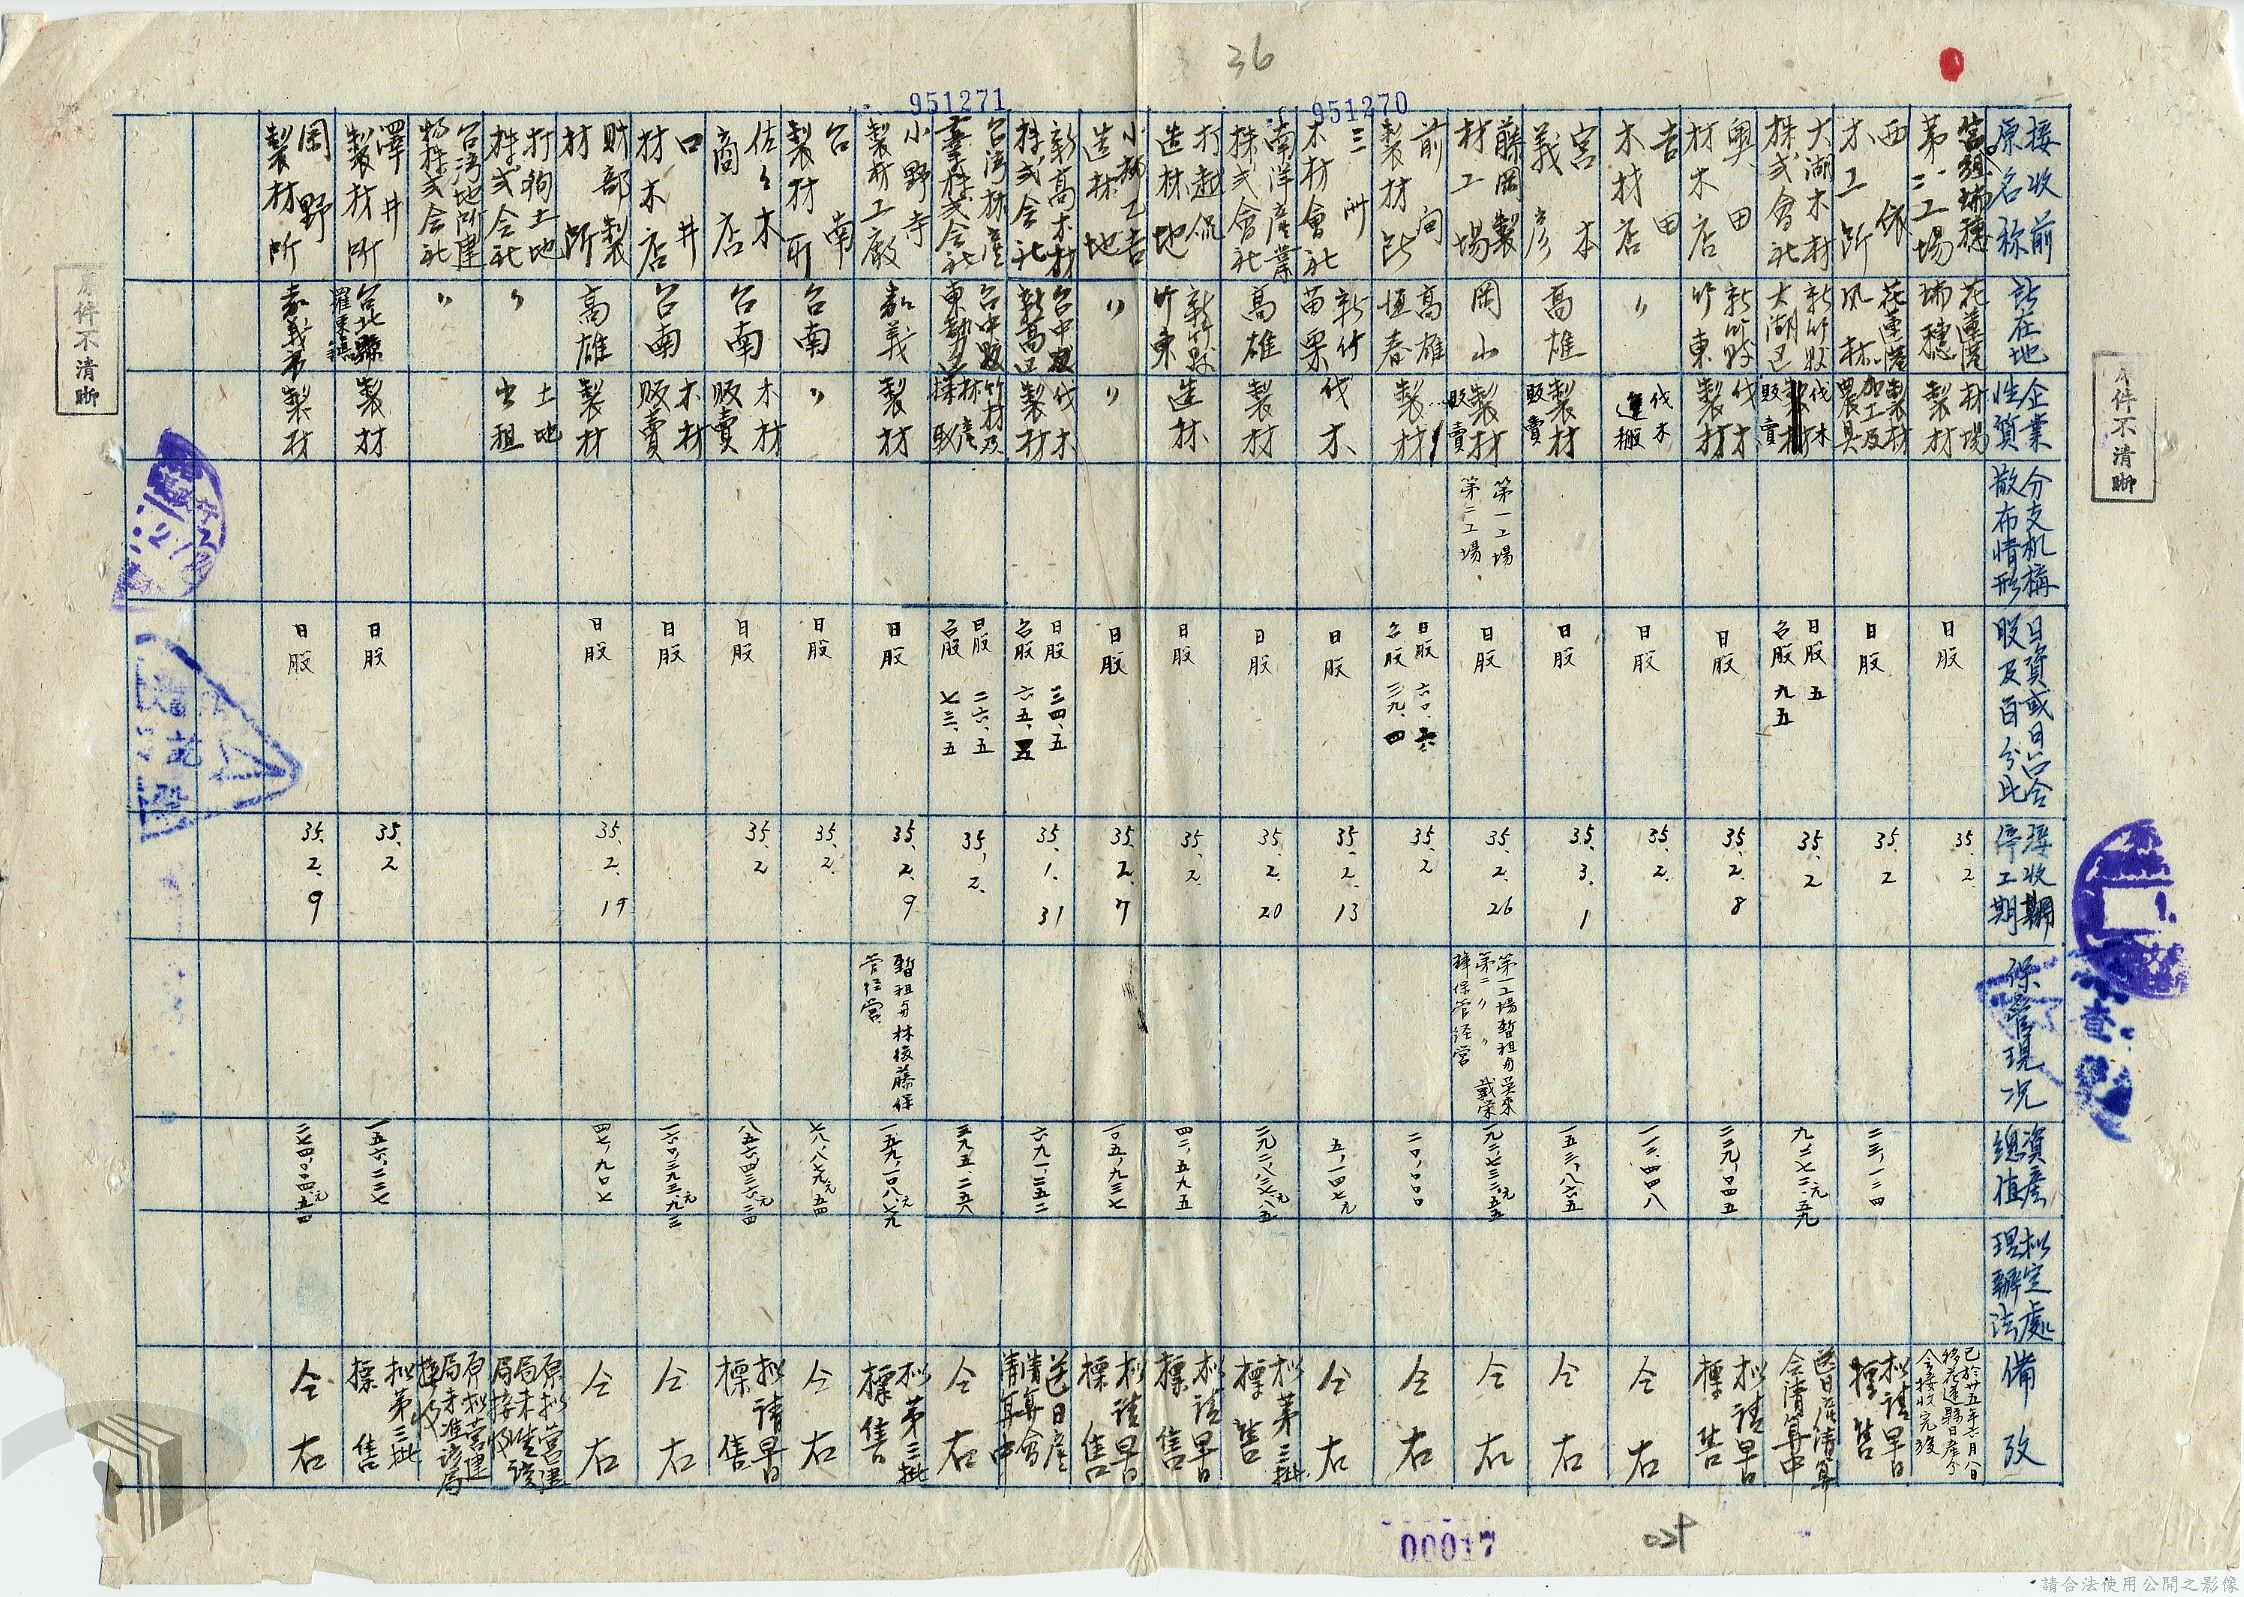 36
951271
951270
接收前
原名称
所在地
企業
性質
分支机構
散布情形
日資或日台合
股及百分比
接收期
停工期
保管現況
資產
總值
拟定處
理辦法
備攷
第二工場
花蓮港
瑞穗
製材
日股
35.2
西依
木工所
花蓮港
凤林
製材
加工及
農具
日股
35.2
二三、一二四
拟請早日
標售
大湖木材
株式會社
新竹縣
大湖区
伐木
販賣
日股 五
台股 九五
35.2
九、二七二元五九
送日產清算
会清算中
奥田
材木店
新竹縣
竹東
伐木
製材
日股
35.2.8
二三九、〇四五
拟請早日
標售
吉田
木材店
〃
伐木
運搬
日股
35.2.
一一三、四四八
仝右
宮本
義彦
高雄
製材
販賣
日股
35.3.1
一五三、八六五
仝右
藤岡製
材工場
岡山
製材
販賣
第一工場
第二工場
日股
35.2.26
第一工場暫租与吳來
第二〃〃 戴荣
璋保管経营
仝右
前间
製材所
高雄
恒春
製材
日股 六〇.六
台股 三九.四
35.2
二〇、〇〇〇
仝右
三洲
木材會社
新竹
苗栗
伐木
日股
35.2.13
五、一四七元
仝右
南洋產業
株式會社
高雄
製材
日股
35.2.20
拟第三批
標售
打起侃
造林地
新竹縣
竹東
造林
日股
35.2
四二、五九五
拟請早日
標售
小林乙吉
造林地
〃
〃
日股
35.2.7
一〇五、九三七
拟請早日
標售
新高木材
株式会社
台中縣
新高区
伐木
製材
日股 三四.五
台股 六五.五
35.1.31
六九一、二五二
送日產
清算會
清算中
台湾林產
業株式会社
台中縣
竹材及
林產
採取
日股 二六.五
台股 七三.五
35.2.
三九五、二五六
仝右
小野寺
製材工廠
嘉義
製材
日股
35.2.9
暫租与林後藤保
管経营
一五九、一〇八元七九
拟第三批
標售
台南
製材所
台南
〃
日股
35.2.
七八、八七九元五四
仝右
佐々木
商店
台南
木材
販賣
日股
35.2
八五六、四三六元二四
拟請早日
標售
口井
材木店
台南
木材
販賣
日股
一六〇、二九三元九三
仝右
财部製
材所
高雄
製材
日股
35.2.19
四七、九〇七
仝右
打狗土地
株式会社
〃
土地
出租
原拟营建
局未准該
局接收
台湾地所建
物株式会社
〃
〃
原拟营建
局未准該局
接收
澤井
製材所
台北縣
羅東鎮
製材
日股
35.2
一五六、二二七
拟第三批
標售
岡野
製材所
嘉義市
製材
日股
35.2.9
二七四、〇〇四元五四
仝右
原件不清晰
原件不清晰
00017
請合法使用公開之影像